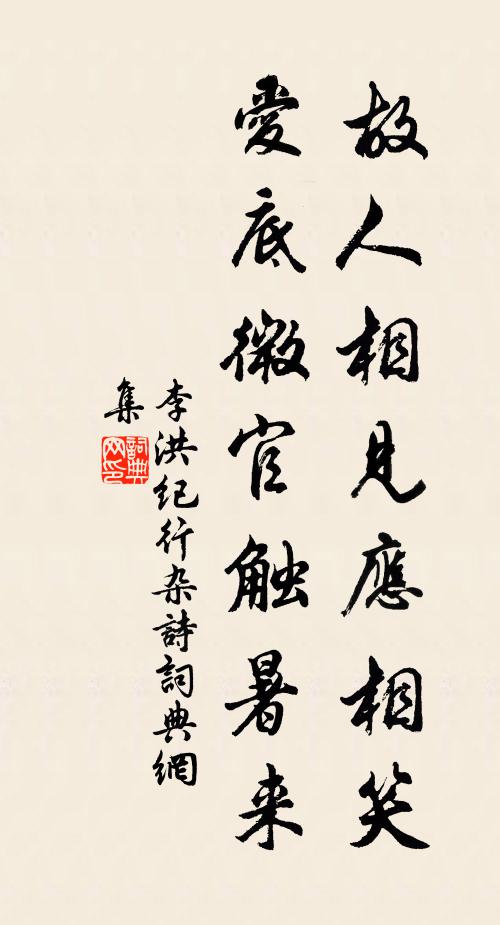 故人相見應相笑
愛底微官触暑来
李洪纪行杂詩詞典網
集
詞典
网印